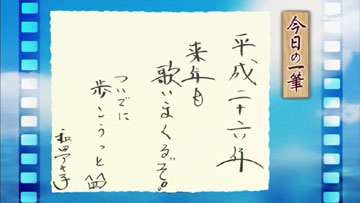 今日の一筆
平成二十六年
来年も
歌いまくるぞ。
ついでに
歩こうっと 笑
和田アキ子